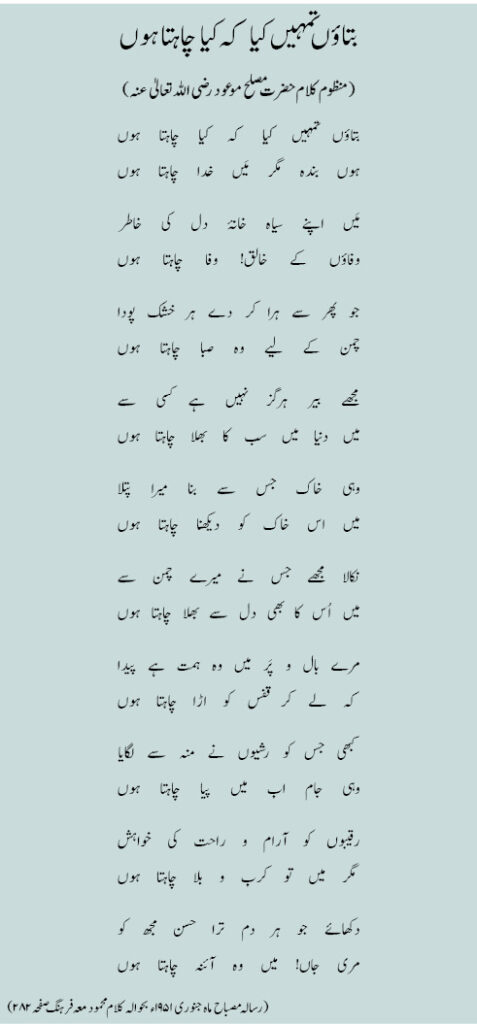 بتاؤں تمہیں کیا کہ کیا چاہتا ہوں
(منظوم کلام حضرت مصلح موعود رضی اللہ تعالیٰ عنہ)
بتاؤں تمہیں کیا کہ کیا چاہتا ہوں
ہوں بندہ مگر مَیں خدا چاہتا ہوں
مَیں اپنے سیاہ خانۂ دل کی خاطر
وفاؤں کے خالق! وفا چاہتا ہوں
جو پھر سے ہرا کر دے ہر خشک پودا
چمن کے لیے وہ صبا چاہتا ہوں
مجھے بیر ہرگز نہیں ہے کسی سے
میں دنیا میں سب کا بھلا چاہتا ہوں
وہی خاک جس سے بنا میرا پتلا
میں اس خاک کو دیکھنا چاہتا ہوں
نکالا مجھے جس نے میرے چمن سے
میں اُس کا بھی دل سے بھلا چاہتا ہوں
مرے بال و پَر میں وہ ہمت ہے پیدا
کہ لے کر قفس کو اڑا چاہتا ہوں
کبھی جس کو رشیوں نے منہ سے لگایا
وہی جام اب میں پیا چاہتا ہوں
رقیبوں کو آرام و راحت کی خواہش
مگر میں تو کرب و بلا چاہتا ہوں
دکھائے جو ہر دم ترا حسن مجھ کو
مری جاں! میں وہ آئنہ چاہتا ہوں
(رسالہ مصباح ماہ جنوری ۱۹۵۱ء بحوالہ کلام محمود معہ فرہنگ صفحہ ۲۸۲)